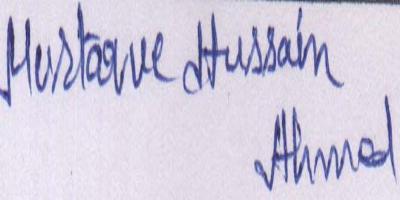 Mustaque Hussain
Ahmed